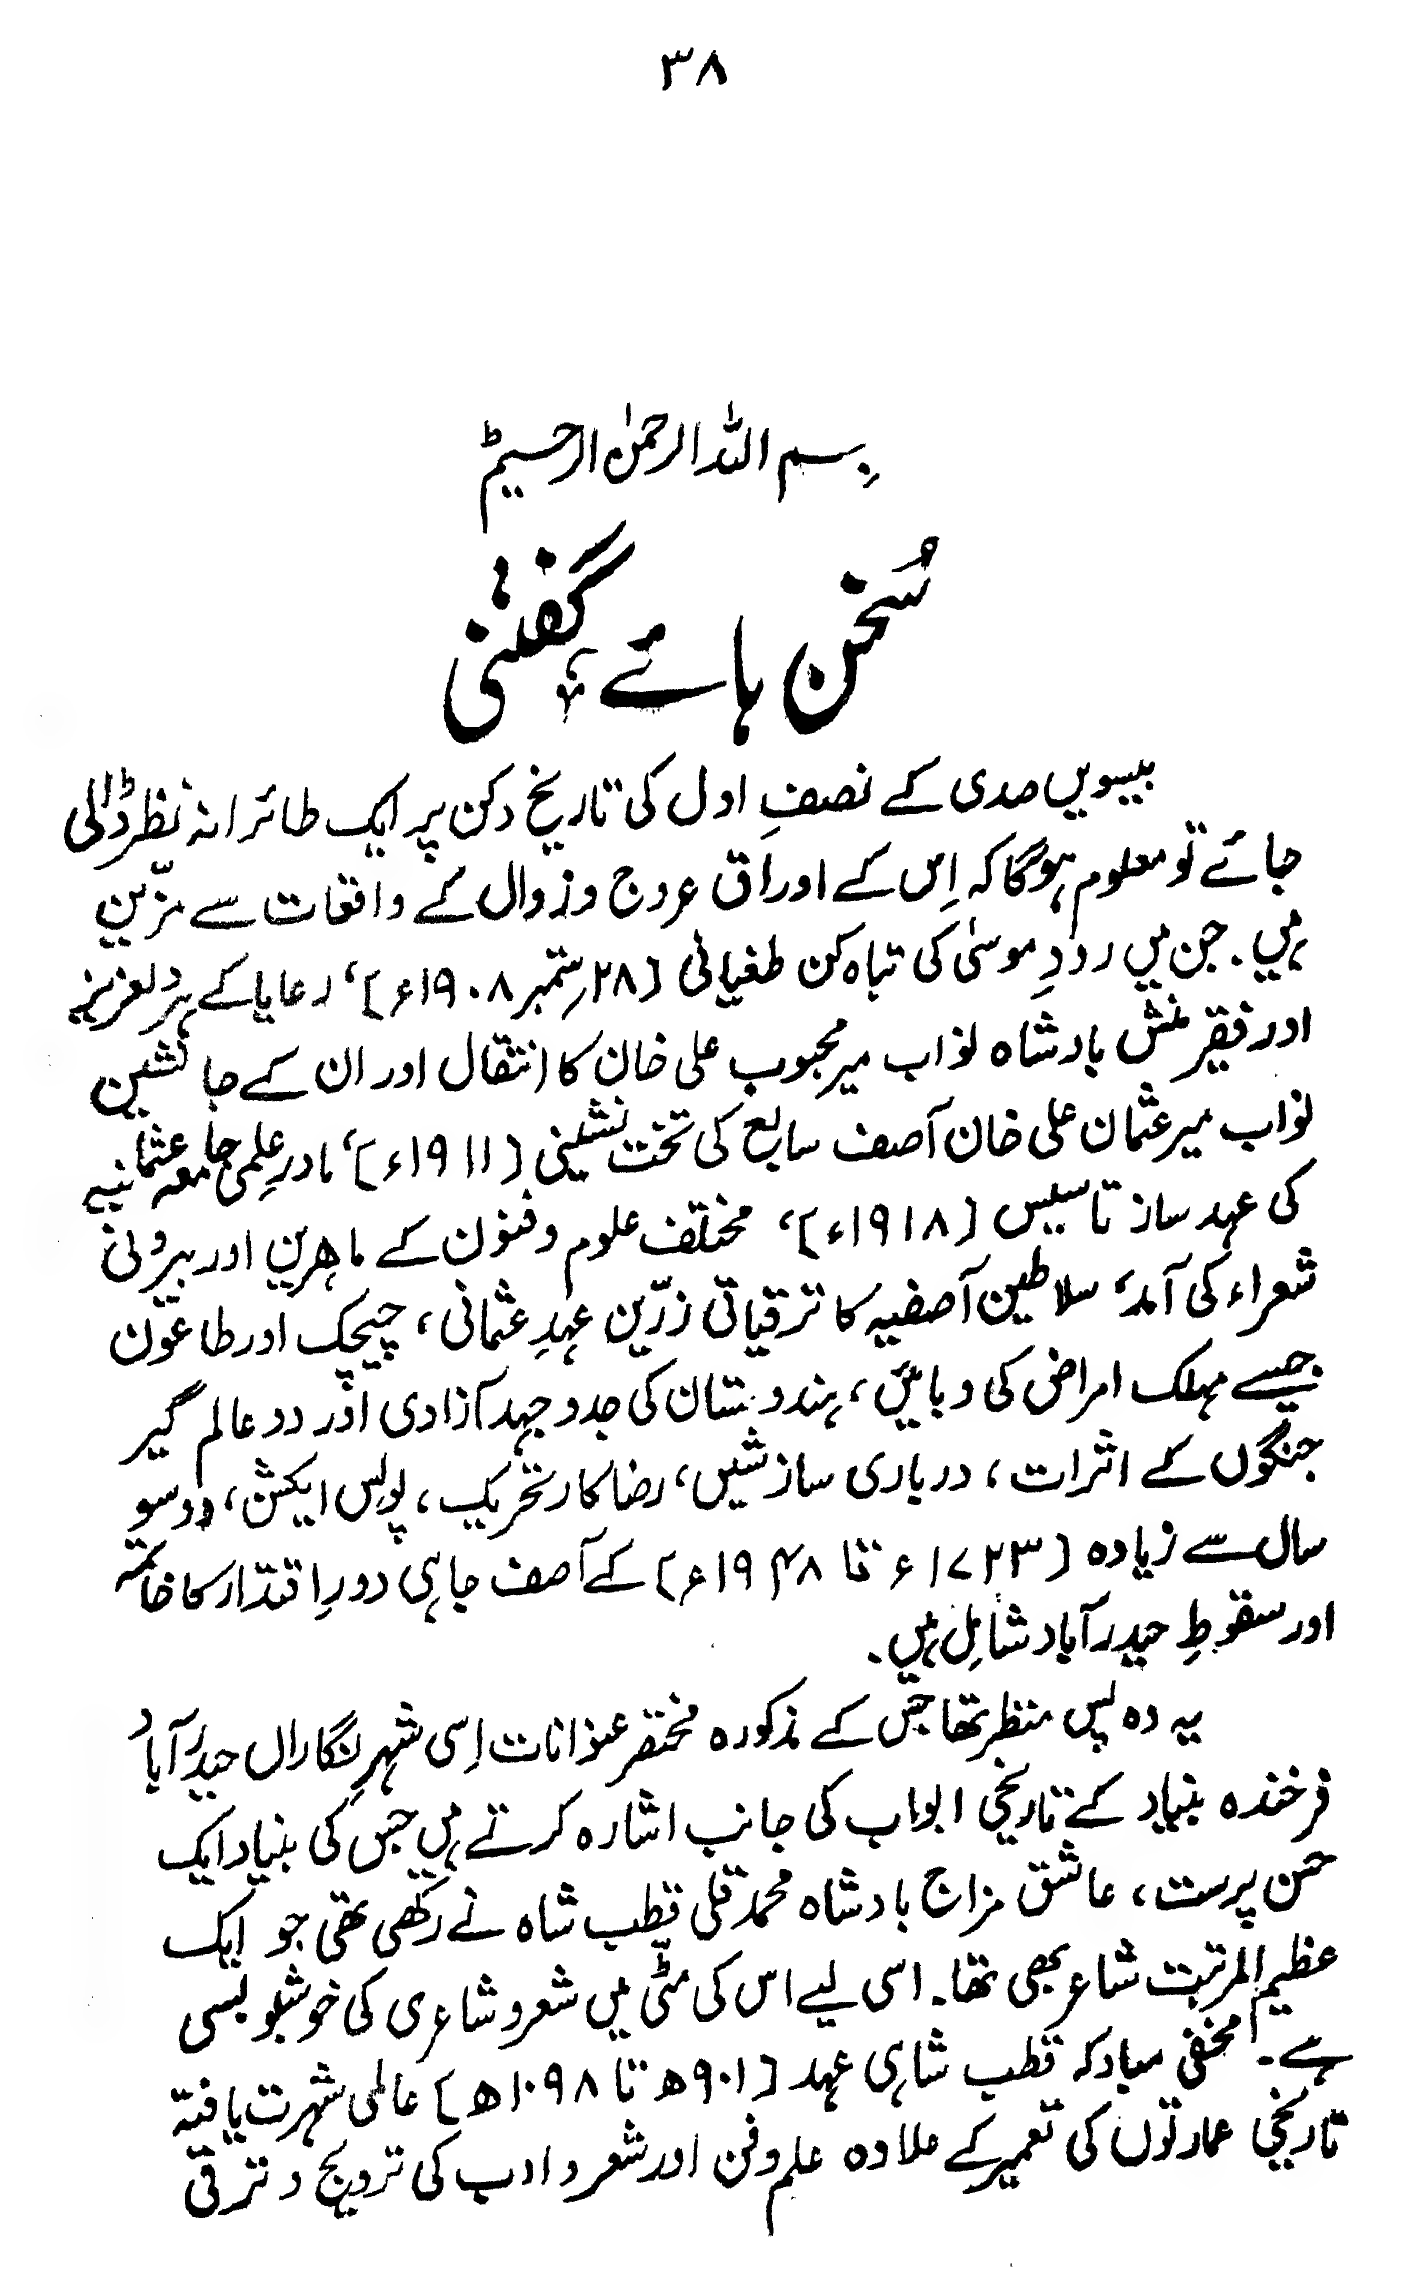 ۳۸
بسم اللہ الرحمٰن الرحیم
سُخن ہائے گفتنی
بیسویں صدی کے نصفِ اول کی تاریخ دکن پر ایک طائرانہ نظر ڈالی
جائے تو معلوم ہوگا کہ اِس کے اوراق عروج و زوال کے واقعات سے مزّین
ہیں۔ جن میں رودِ موسیٰ کی تباہ کن طغیانی [۲۸ ستمبر ۱۹۰۸ء]، رعایا کے ہر دلعزیز
اور فقیر منش بادشاہ نواب میر محبوب علی خان کا انتقال اور ان کے جانشین
نواب میر عثمان علی خان آصف سابع کی تخت نشینی [۱۹۱۱ء]، مادرِ علمی جامعہ عثمانیہ
کی عہد ساز تاسیس [۱۹۱۸ء]، مختلف علوم و فنون کے ماہرین اور بیرونی
شعراء کی آمد، سلاطین آصفیہ کا ترقیاتی زرّین عہدِ عثمانی، چیچک اور طاعون
جیسے مہلک امراض کی وبائیں، ہندوستان کی جدوجہد آزادی اور دو عالم گیر
جنگوں کے اثرات، درباری سازشیں، رضاکار تحریک، پولس ایکشن، دو سو
سال سے زیادہ [۱۷۲۳ء تا ۱۹۴۸ء] کے آصف جاہی دورِ اقتدار کا خاتمہ
اور سقوطِ حیدرآباد شامِل ہیں۔
یہ وہ پس منظر تھا جس کے مذکورہ مختصر عنوانات اِسی شہرِ نگاراں حیدرآباد
فرخندہ بنیاد کے تاریخی ابواب کی جانب اشارہ کرتے ہیں جس کی بنیاد ایک
حسن پرست، عاشق مزاج بادشاہ محمد قلی قطب شاہ نے رکھی تھی جو ایک
عظیم المرتبت شاعر بھی تھا۔ اسی لیے اس کی مٹی میں شعر و شاعری کی خوشبو بسی
ہے۔ مخفی مباد کہ قطب شاہی عہد [۹۰۱ھ تا ۱۰۹۸ھ] عالمی شہرت یافتہ
تاریخی عمارتوں کی تعمیر کے علاوہ علم و فن اور شعر و ادب کی ترویج و ترقی